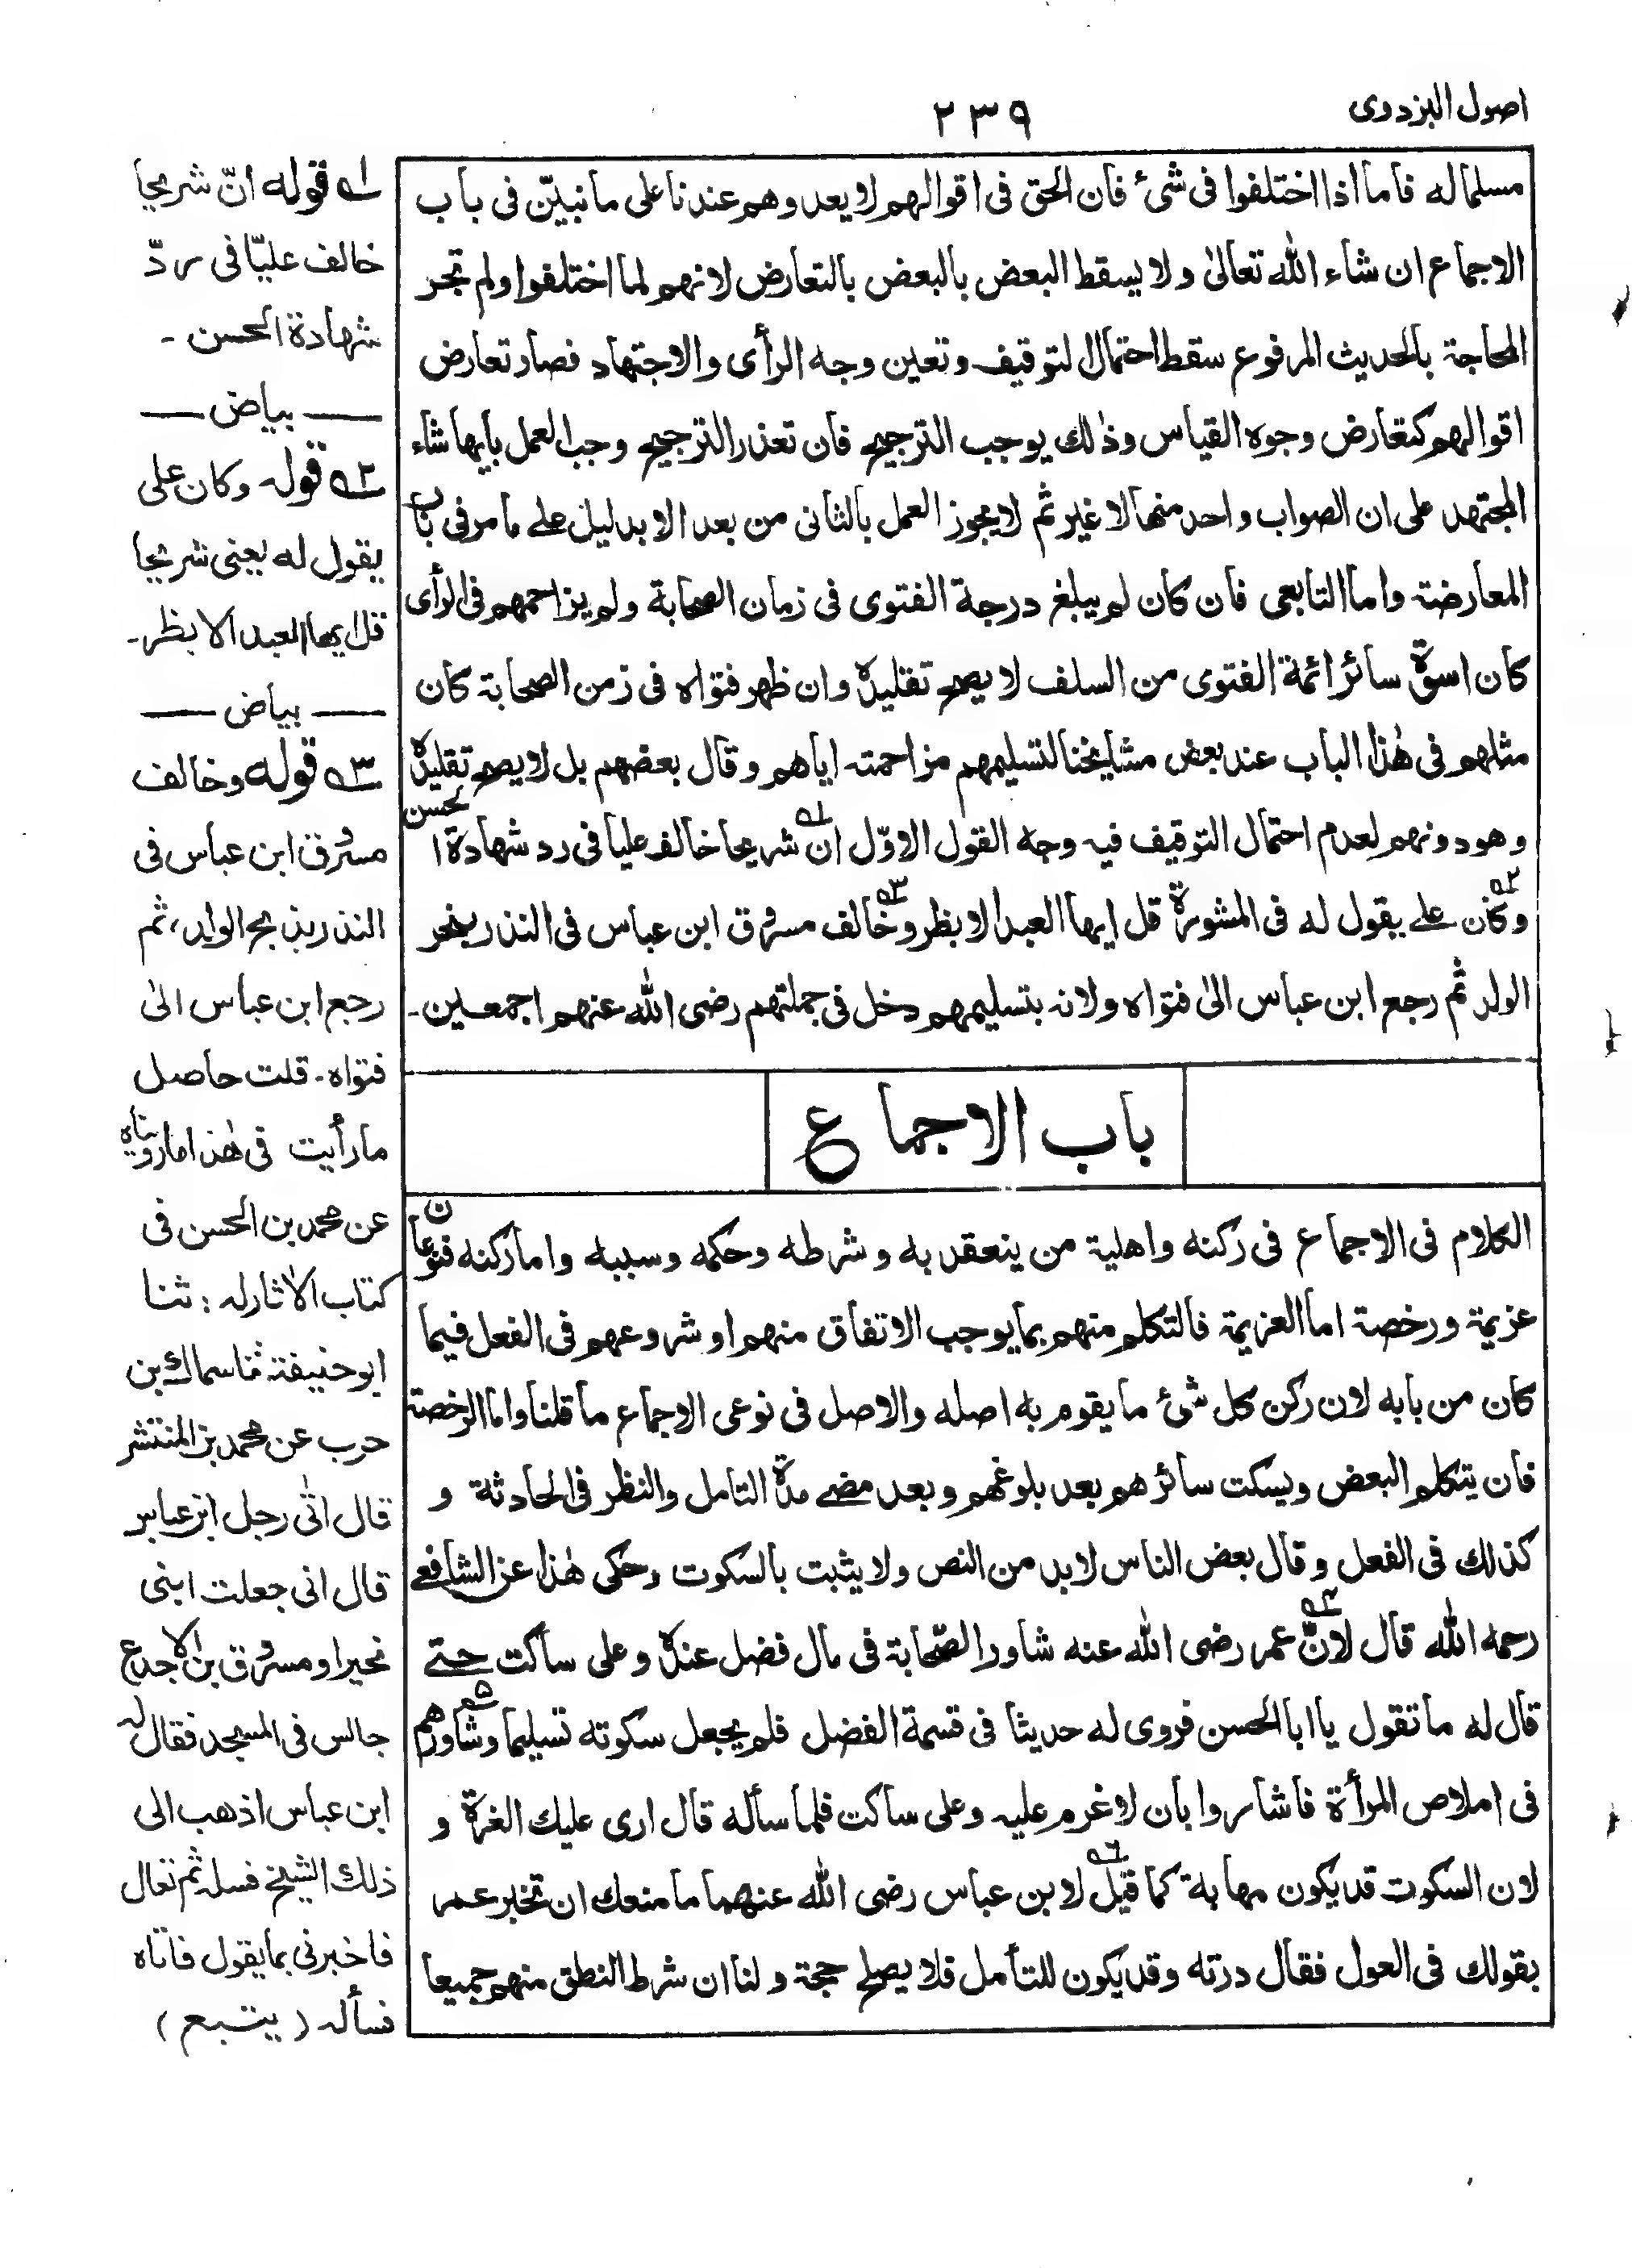 اصول البزدوی
٢٣٩
مسلما له فاما اذا اختلفوا فی شئ فان الحق فی اقوالهم لا يعدوهم عندنا علی ما نبيّن فی باب
الاجماع ان شاء الله تعالیٰ ولا يسقط البعض بالبعض بالتعارض لانهم لما اختلفوا ولم تجر
المحاجة بالحديث المرفوع سقط احتمال التوقيف وتعين وجه الرأی والاجتهاد فصار تعارض
اقوالهم كتعارض وجوه القياس وذٰلك يوجب الترجيح فان تعذر الترجيح وجب العمل بايها شاء
المجتهد علی ان الصواب واحد منها لا غير ثم لا يجوز العمل بالثانی من بعد الا بدليل علے ما مر فی باب
المعارضة واما التابعی فان كان لم يبلغ درجة الفتوی فی زمان الصحابة ولم يزاحمهم فی الرأی
كان اسوة سائر ائمة الفتوی من السلف لا يصح تقليده وان ظهر فتواه فی زمن الصحابة كان
مثلهم فی هٰذا الباب عند بعض مشايخنا لتسليمهم مزاحمته اياهم وقال بعضهم بل لا يصح تقليده
وهو دونهم لعدم احتمال التوقيف فيه وجه القول الاوّل ان ١ه شريحا خالف عليا فی رد شهادة الحسن
٢ه وكان علے يقول له فی المشورة قل ايها العبد الابظر ٣ه وخالف مسروق ابن عباس فی النذر بنحر
الولد ثم رجع ابن عباس الیٰ فتواه ولانه بتسليمهم دخل فی جملتهم رضی الله عنهم اجمعين۔
باب الاجماع
الكلام فی الاجماع فی ركنه واهلية من ينعقد به وشرطه وحكمه وسببه واما ركنه فنوعان
عزيمة ورخصة اما العزيمة فالتكلم منهم بما يوجب الاتفاق منهم او شروعهم فی الفعل فيما
كان من بابه لان ركن كل شئ ما يقوم به اصله والاصل فی نوعی الاجماع ما قلنا واما الرخصة
فان يتكلم البعض ويسكت سائرهم بعد بلوغهم وبعد مضے مدة التامل والنظر فی الحادثة و
كذلك فی الفعل وقال بعض الناس لابد من النص ولا يثبت بالسكوت وحكی هٰذا عن الشافعے
رحمه الله قال ٤ه لانّ عمر رضی الله عنه شاور الصّحابة فی مال فضل عنده وعلی ساكت حتے
قال له ما تقول يا ابا الحسن فروی له حديثا فی قسمة الفضل فلم يجعل سكوته تسليما ٥ه وشاورهم
فی املاص المرأة فاشاروا بان لا غرم عليه وعلی ساكت فلما سأله قال اری عليك الغرة و
لان السكوت قد يكون مهابة كما ٦ه قيل لابن عباس رضی الله عنهما ما منعك ان تخبر عمر
بقولك فی العول فقال درته وقد يكون للتأمل فلا يصلح حجة ولنا ان شرط النطق منهم جميعا
١ه قوله انّ شريحا
خالف عليّا فی ردّ
شهادة الحسن ۔
— بياض —
٢ه قوله وكان علی
يقول له يعنی شريحا
قل ايها العبد الابظر۔
— بياض —
٣ه قوله وخالف
مسروق ابن عباس فی
النذر بذبح الولد، ثم
رجع ابن عباس الیٰ
فتواه۔ قلت حاصل
ما رأيت فی هٰذا ما رويناه
عن محمد بن الحسن فی
كتاب الاٰثار له : ثنا
ابو حنيفة ثنا سماك بن
حرب عن محمد بن المنتشر
قال اتٰی رجل ابن عباس
قال انی جعلت ابنی
نحيرا ومسروق بن الاجدع
جالس فی المسجد فقال له
ابن عباس اذهب الی
ذلك الشيخ فسله ثم تعال
فاخبرنی بما يقول فاتاه
فسأله ( يتبع )